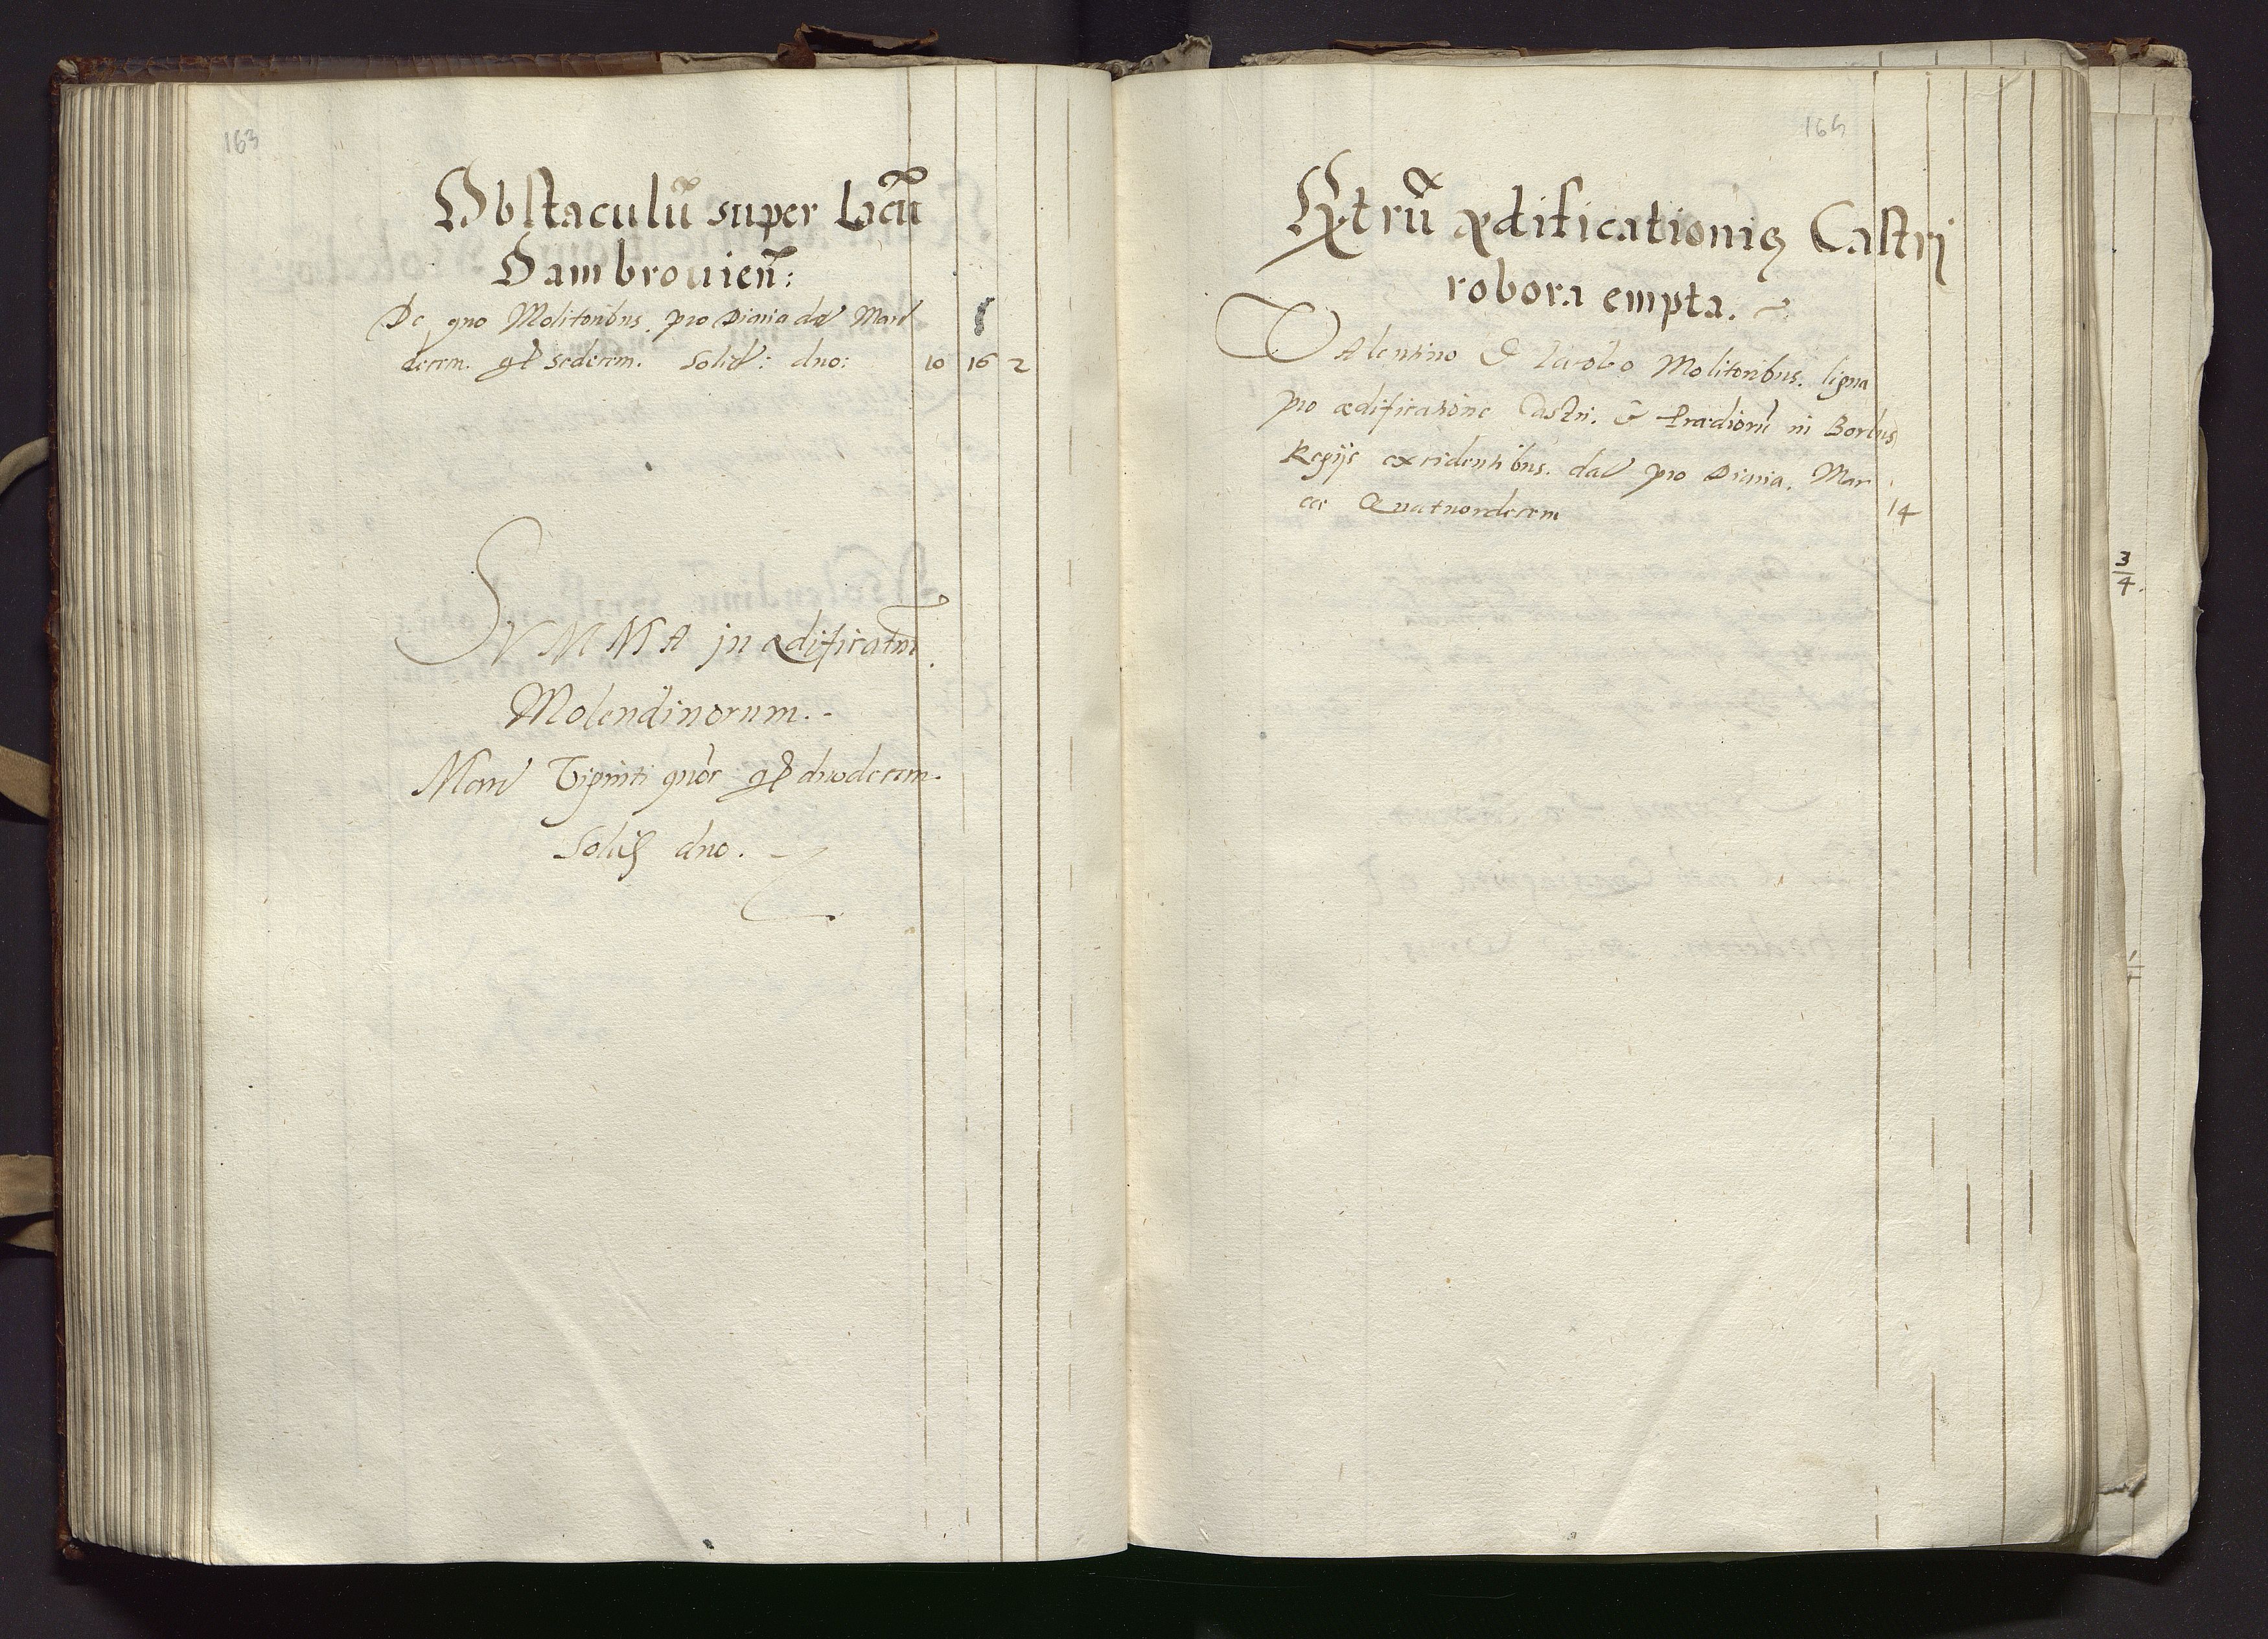 163
Obstaculũ super lacũ
Dambrouieñ:
De quo Molitoribus. pro Diaria dał Marł
decem. gł sedecem. Solid: duo: 10 16 2
SVMMA in ædificatũ
Molendinorum.-
Marł Viginti quõr gł duodecem
Solid duo.
Extrũ ædificationis Castri
robora empta.
Valentino & Iacobo Molitoribus. ligna
pro ædificatione Castri. & Prædiorũ in Borbus
Regijs excidentibus. dał pro Diaria. Mar
cæ Quatuordecem 14
3/4.